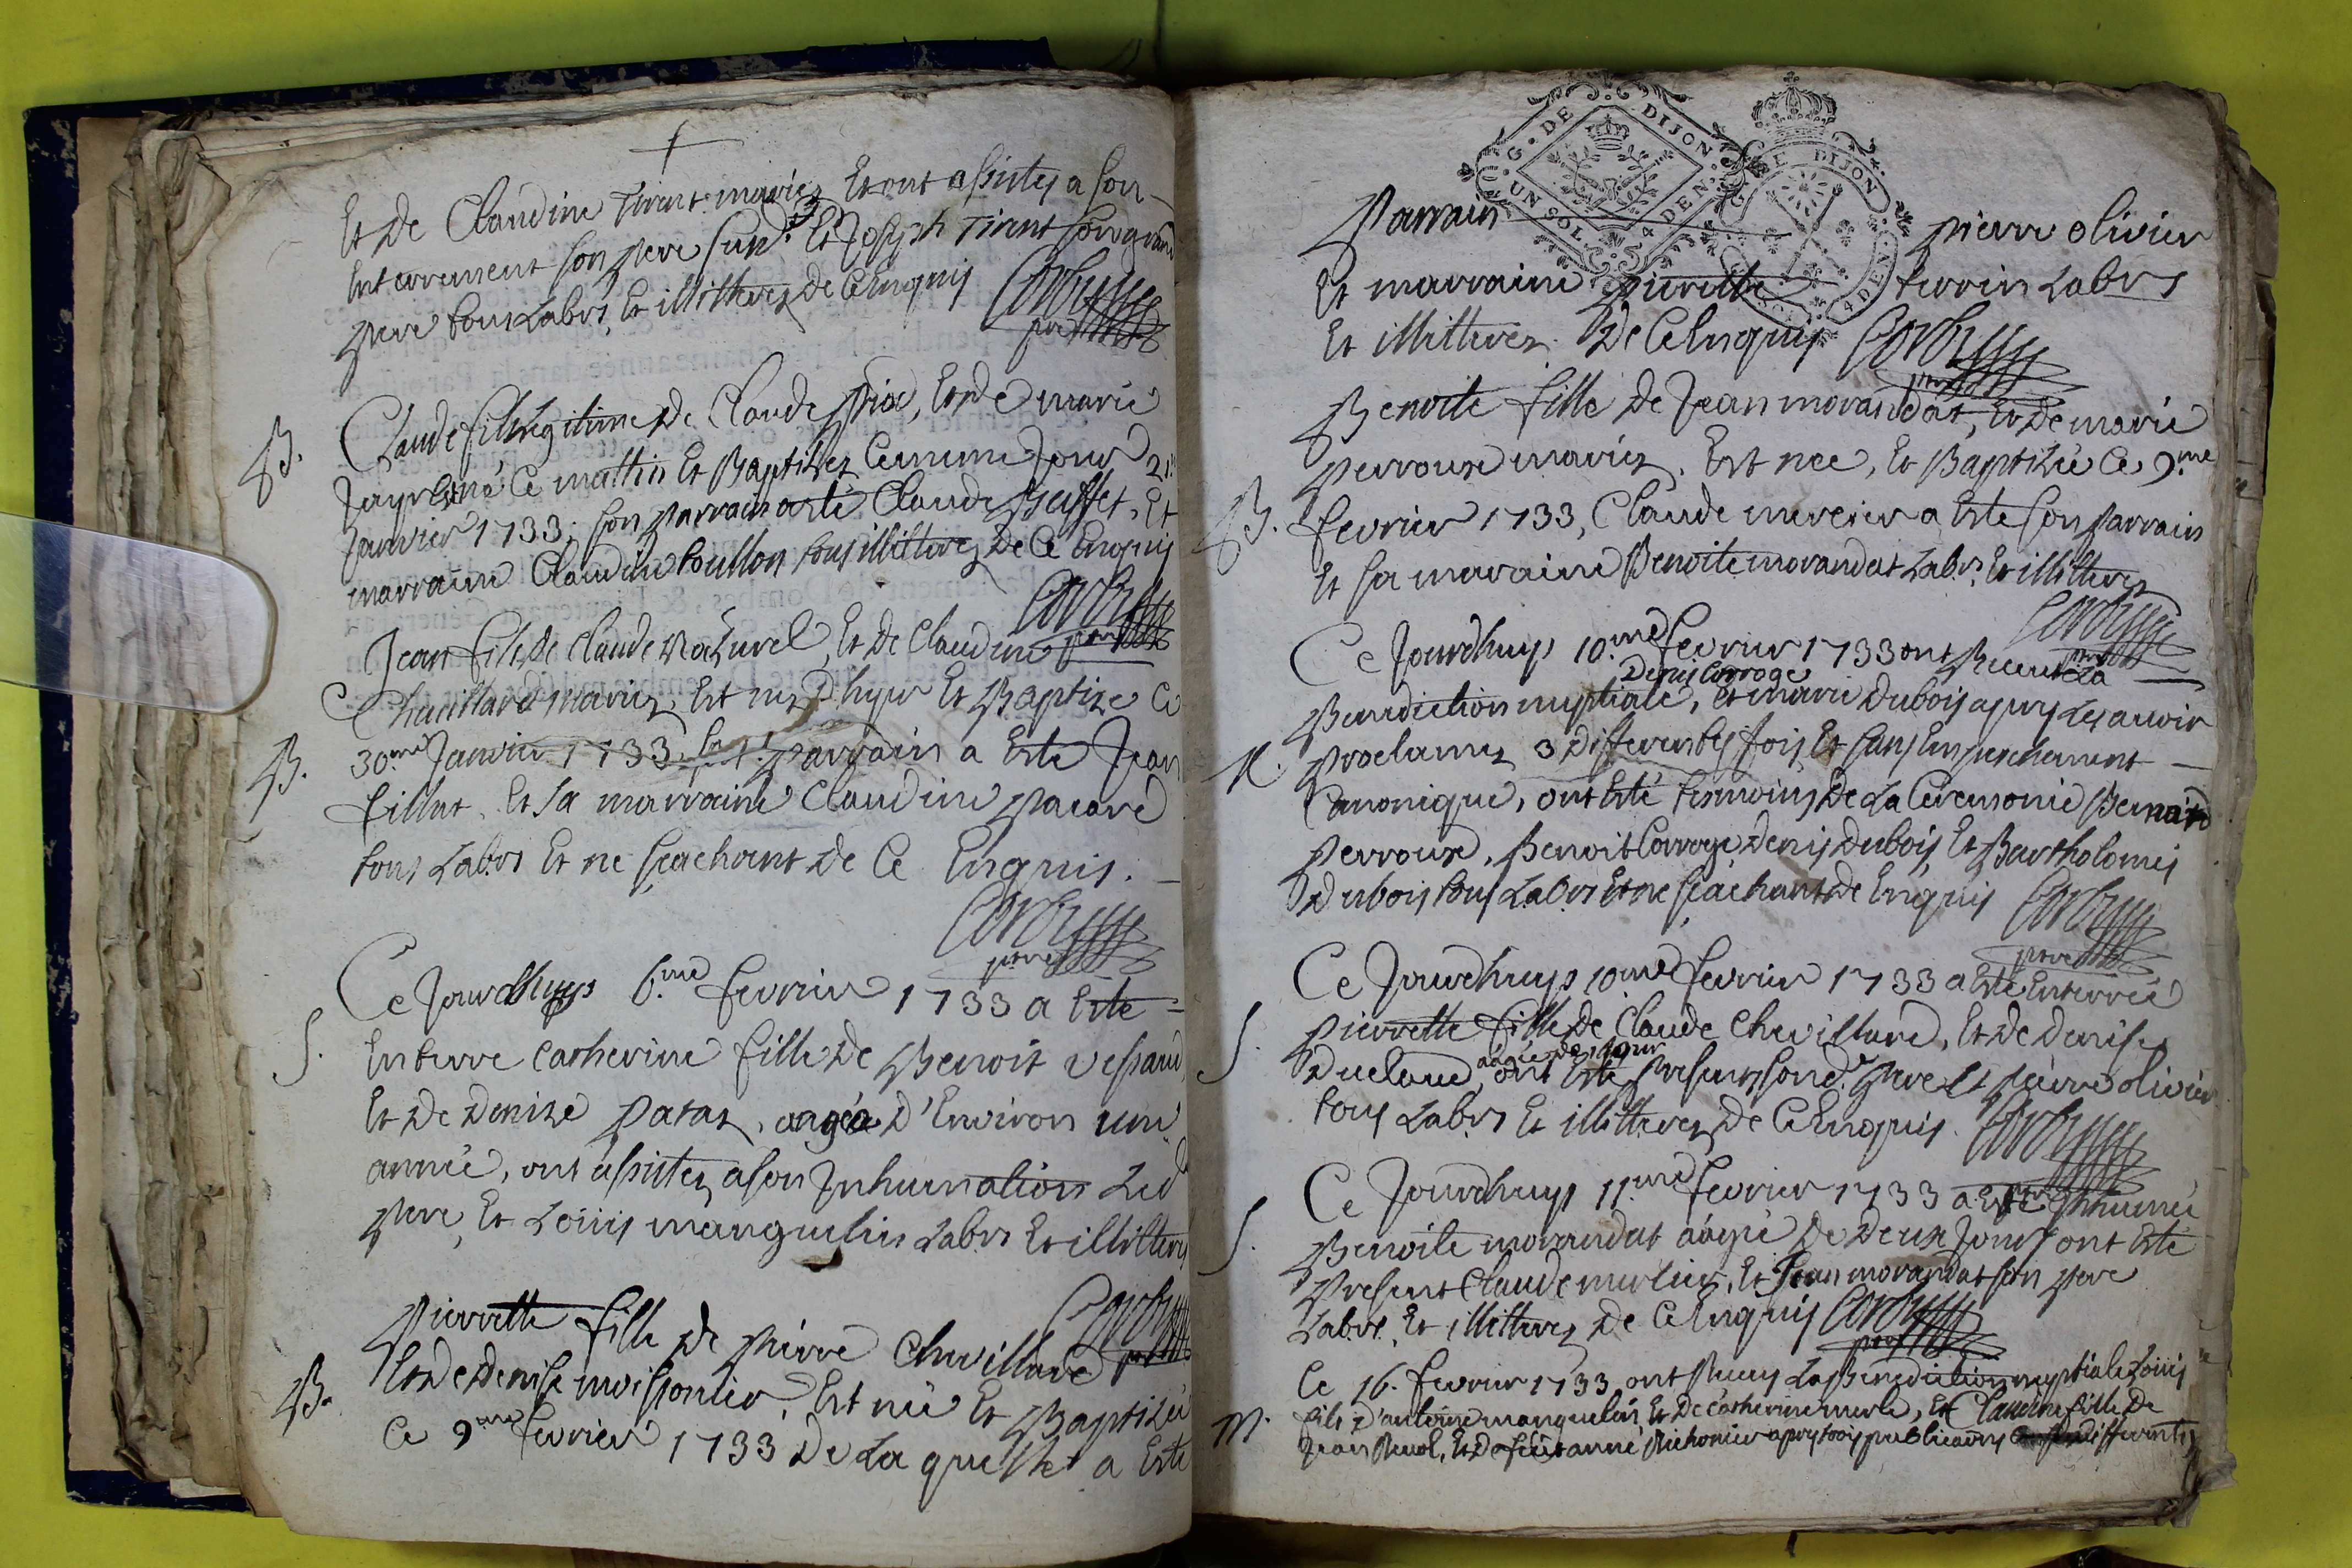 Et De Claudine Tirent mariez Et ont assistez a son
Enterrement son pere susd. Et Joseph Tirent son grand
pere tous Labrs, Et illitterez de ce Enquis
Corbysson
B.
Claude fils legitime De Claude Prix, Et de marie
né Ce mattin Et Baptisez Ce meme Jour 21.
Janvier 1733, son parrain a esté Claude Buffet, Et
marraine Claudine Coullon tous illitterez De Ce Enquis
Jean fils De Claude Et De Claudine
Chevillard mariez, Est nez D'hyer Et Baptize Ce
B.
30.me Janvier 1733, Sr parrain a Esté Jean
fillat, Et sa marraine Claudine pacaré
tous Labrs Et ne sçachant De Ce Enquis.
S.
Ce Jourdhuys 6.me fevrier 1733 a Esté
Enterré catherine fille De Benoit
Et De Denize aagée D'Environ une
année, ont assistez a son Inhumation Led
pere, Et Loüis manguelin Labrs Et illitterez
Pierrette fille De pierre Chevillard
B.
Et De Denise moissonier, Est née Et Baptisée
Ce 9.me fevrier 1733 De La quelle a Esté
G. DE DIJON
UN SOL. 4 DEN.
DE DIJON
4 DEN.
Parrain pierre olivier
Et marraine pierrette terrier Labrs
Et illitterez De Ce Enquis
Benoite fille De Jean morandat, Et De marie
perroux mariez, Est née, Et Baptisée Ce 9.me
B.
fevrier 1733, Claude mercier a Esté son parrain
Et sa maraine Benoite morandat Labrs. Et illitterez
Ce Jourdhuys 10.me fevrier 1733 ont Receus La
Denis Corroge
Benediction nuptiale, et marie Dubois apres Les avoir
M.
proclamez 3 Differentes fois Et sans Empechement
Canonique, ont Esté temoins De La Ceremonie Bernard
perroux, Benoit Corroge, Denis Dubois, Et Bartholomé
Dubois tous Labrs Et ne sçachant De Enquis
Ce Jourdhuys 10.me fevrier 1733 a Esté Enterrée
S.
pierrette fille De Claude Chevillard, Et De Denise
aagée de 1 jour
ont Esté presens sond. pere Et pierre olivier
tous Labrs Et illitterez De Ce Enquis.
Ce Jourdhuys 11.me fevrier 1733 a Esté Inhumée
S.
Benoite morandat aagée De Deux Jours ont Esté
present Claude mercier, Et Jean morandat son pere
Labrs Et illitterez De Ce Enquis
Ce 16. fevrier 1733 ont Receus La Benediction nuptiale Loüis
M.
fils D'antoine manguelin Et De catherine merle, Et Claudine fille De
Jean Et De feüe anne Michonier apres trois publications differentes